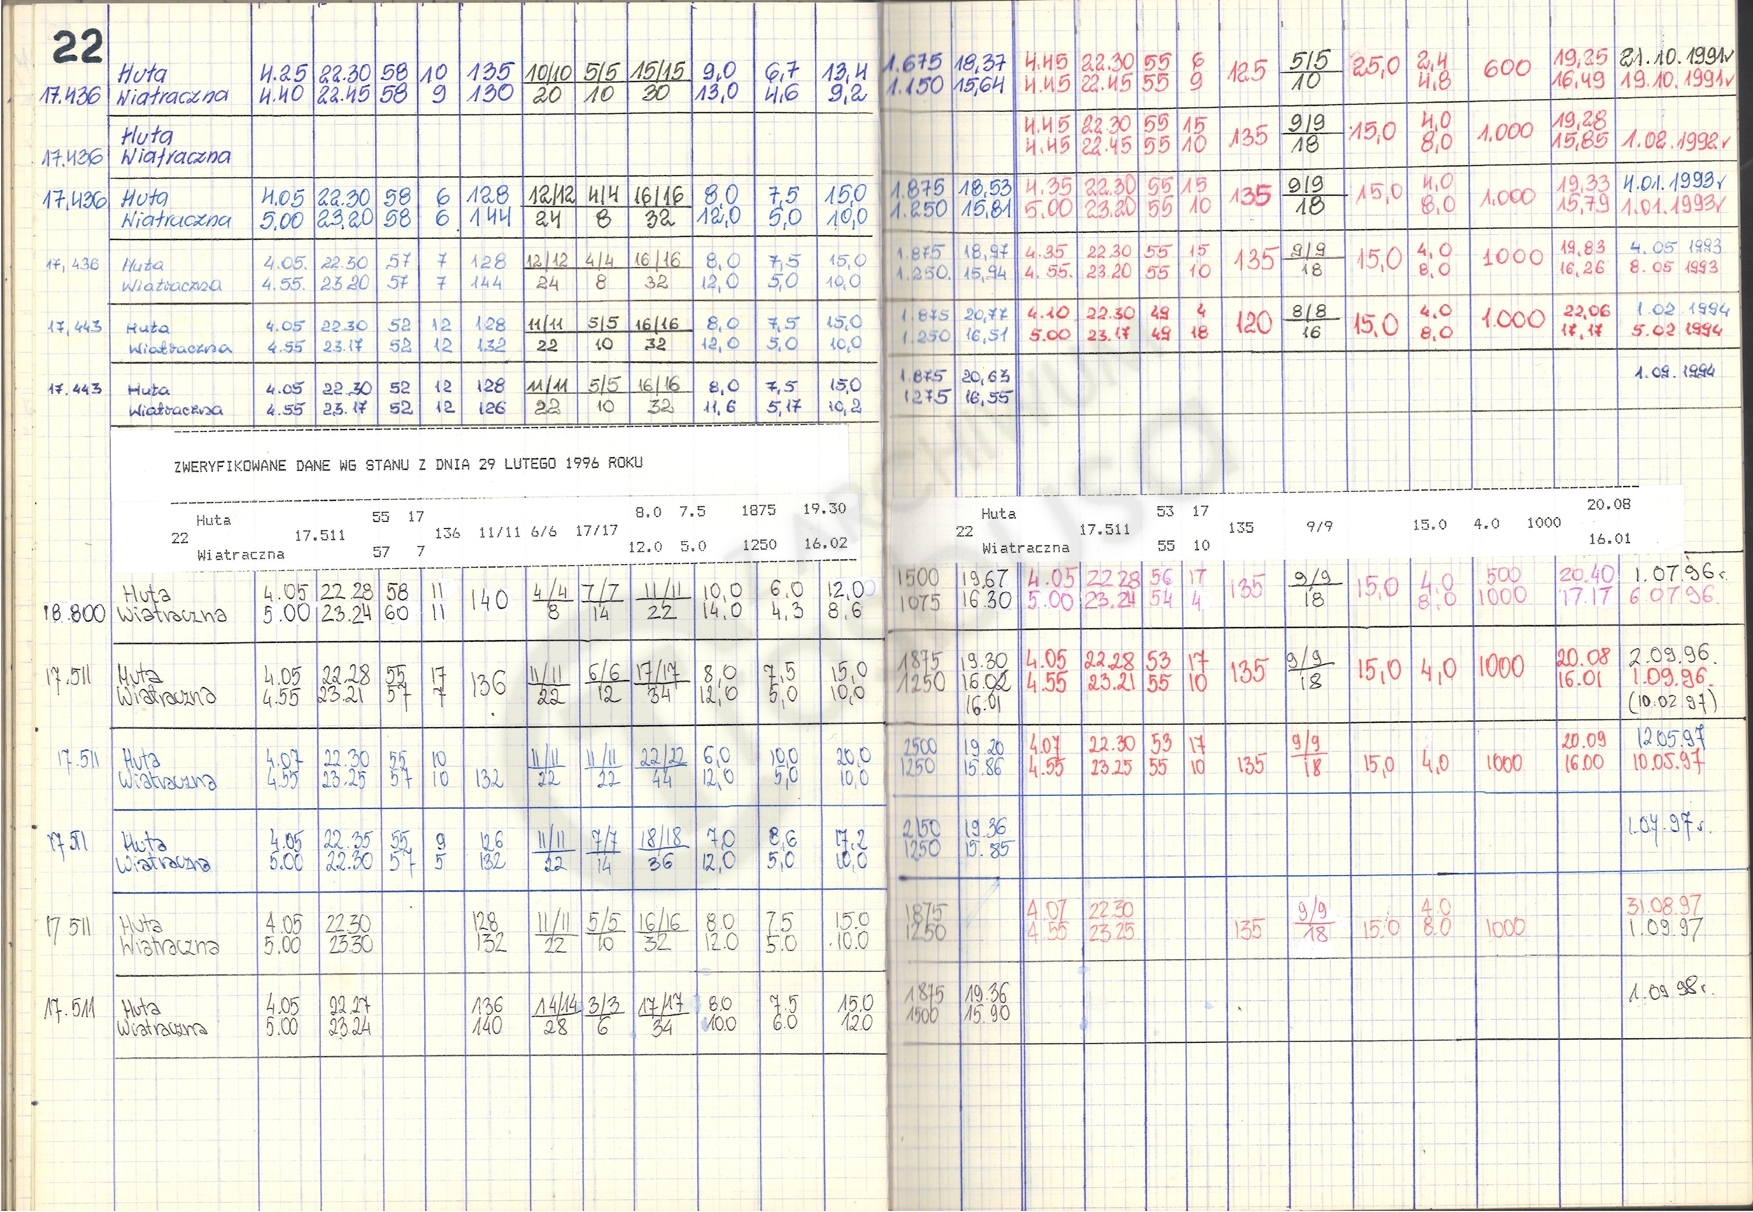 22
Huta 4.25 22.30 58 10 135 10/10 5/5 15/15 9,0 6,7 13,4 1.675 18,37 4.45 22.30 55 6 125 5/5 25,0 2,4 600 19,25 21.10.1991r
17.436 Wiatraczna 4.40 22.45 58 9 130 20 10 30 13,0 4,6 9,2 1.150 15,64 4.45 22.45 55 9 10 4,8 16,49 19.10.1991r
Huta 4.45 22.30 55 15 135 9/9 15,0 4,0 1.000 19,28
17.436 Wiatraczna 4.45 22.45 55 10 18 8,0 15,85 1.02.1992r
17,436 Huta 4.05 22.30 58 6 128 12/12 4/4 16/16 8,0 7,5 15,0 1.875 18,53 4.35 22.30 55 15 135 9/9 15,0 4,0 1.000 19,33 4.01.1993r
Wiatraczna 5,00 23,20 58 6 144 24 8 32 12,0 5,0 10,0 1.250 15,81 5.00 23.20 55 10 18 8,0 15,79 1.01.1993r
17,436 Huta 4.05. 22.30 57 7 128 12/12 4/4 16/16 8,0 7,5 15,0 1.875 18,97 4.35 22.30 55 15 135 9/9 15,0 4,0 1000 19,83 4.05 1993
Wiatraczna 4.55. 23.20 57 7 144 24 8 32 12,0 5,0 10,0 1.250. 15,94 4.55. 23.20 55 10 18 8,0 16,26 8.05 1993
17,443 Huta 4.05 22.30 52 12 128 11/11 5/5 16/16 8,0 7,5 15,0 1.875 20,77 4.10 22.30 49 4 120 8/8 15,0 4,0 1.000 22,06 1.02 1994
Wiatraczna 4.55 23.17 52 12 132 22 10 32 12,0 5,0 10,0 1.250 16,51 5.00 23.17 49 18 16 8,0 17,17 5.02 1994
17.443 Huta 4.05 22.30 52 12 128 11/11 5/5 16/16 8,0 7,5 15,0 1.875 20,63 1.09.1994
Wiatraczna 4.55 23.17 52 12 126 22 10 32 11,6 5,17 10,2 1275 16,55
ZWERYFIKOWANE DANE WG STANU Z DNIA 29 LUTEGO 1996 ROKU
Huta 55 17 8.0 7.5 1875 19.30 Huta 53 17 20.08
22 17.511 136 11/11 6/6 17/17 22 17.511 135 9/9 15.0 4.0 1000
Wiatraczna 57 7 12.0 5.0 1250 16.02 Wiatraczna 55 10 16.01
Huta 4.05 22.28 58 11 140 4/4 7/7 11/11 10,0 6.0 12,0 1500 19.67 4.05 22.28 56 17 135 9/9 15,0 4,0 500 20.40 1.07.96r.
18.800 Wiatraczna 5.00 23.24 60 11 8 14 22 14,0 4,3 8,6 1075 16.30 5.00 23.24 54 4 18 8,0 1000 17.17 6.07.96.
17.511 Huta 4.05 22.28 55 17 136 11/11 6/6 17/17 8,0 7,5 15,0 1875 19.30 4.05 22.28 53 17 135 9/9 15,0 4,0 1000 20.08 2.09.96.
Wiatraczna 4.55 23.21 57 7 22 12 34 12,0 5,0 10,0 1250 16.02 4.55 23.21 55 10 18 16.01 1.09.96.
16.01 (10.02.97)
17.511 Huta 4.07 22.30 55 10 11/11 11/11 22/22 6,0 10,0 20,0 2500 19.20 4.07 22.30 53 17 9/9 20.09 12.05.97
Wiatraczna 4.55 23.25 57 10 132 22 22 44 12,0 5,0 10,0 1250 15.86 4.55 23.25 55 10 135 18 15,0 4,0 1000 16.00 10.05.97
17.511 Huta 4.05 22.35 55 9 126 11/11 7/7 18/18 7,0 8,6 17,2 2150 19.36 1.07.97r.
Wiatraczna 5.00 22.30 57 5 132 22 14 36 12,0 5,0 10,0 1250 15.85
17 511 Huta 4.05 22.30 128 11/11 5/5 16/16 8.0 7.5 15.0 1875 4.07 22.30 9/9 4.0 31.08.97
Wiatraczna 5.00 23.30 132 22 10 32 12.0 5.0 10.0 1250 4.55 23.25 135 18 15.0 8.0 1000 1.09.97
17.511 Huta 4.05 22.27 136 14/14 3/3 17/17 8.0 7.5 15.0 1875 19.36 1.09.98r.
Wiatraczna 5.00 23.24 140 28 6 34 10.0 6.0 12.0 1500 15.90